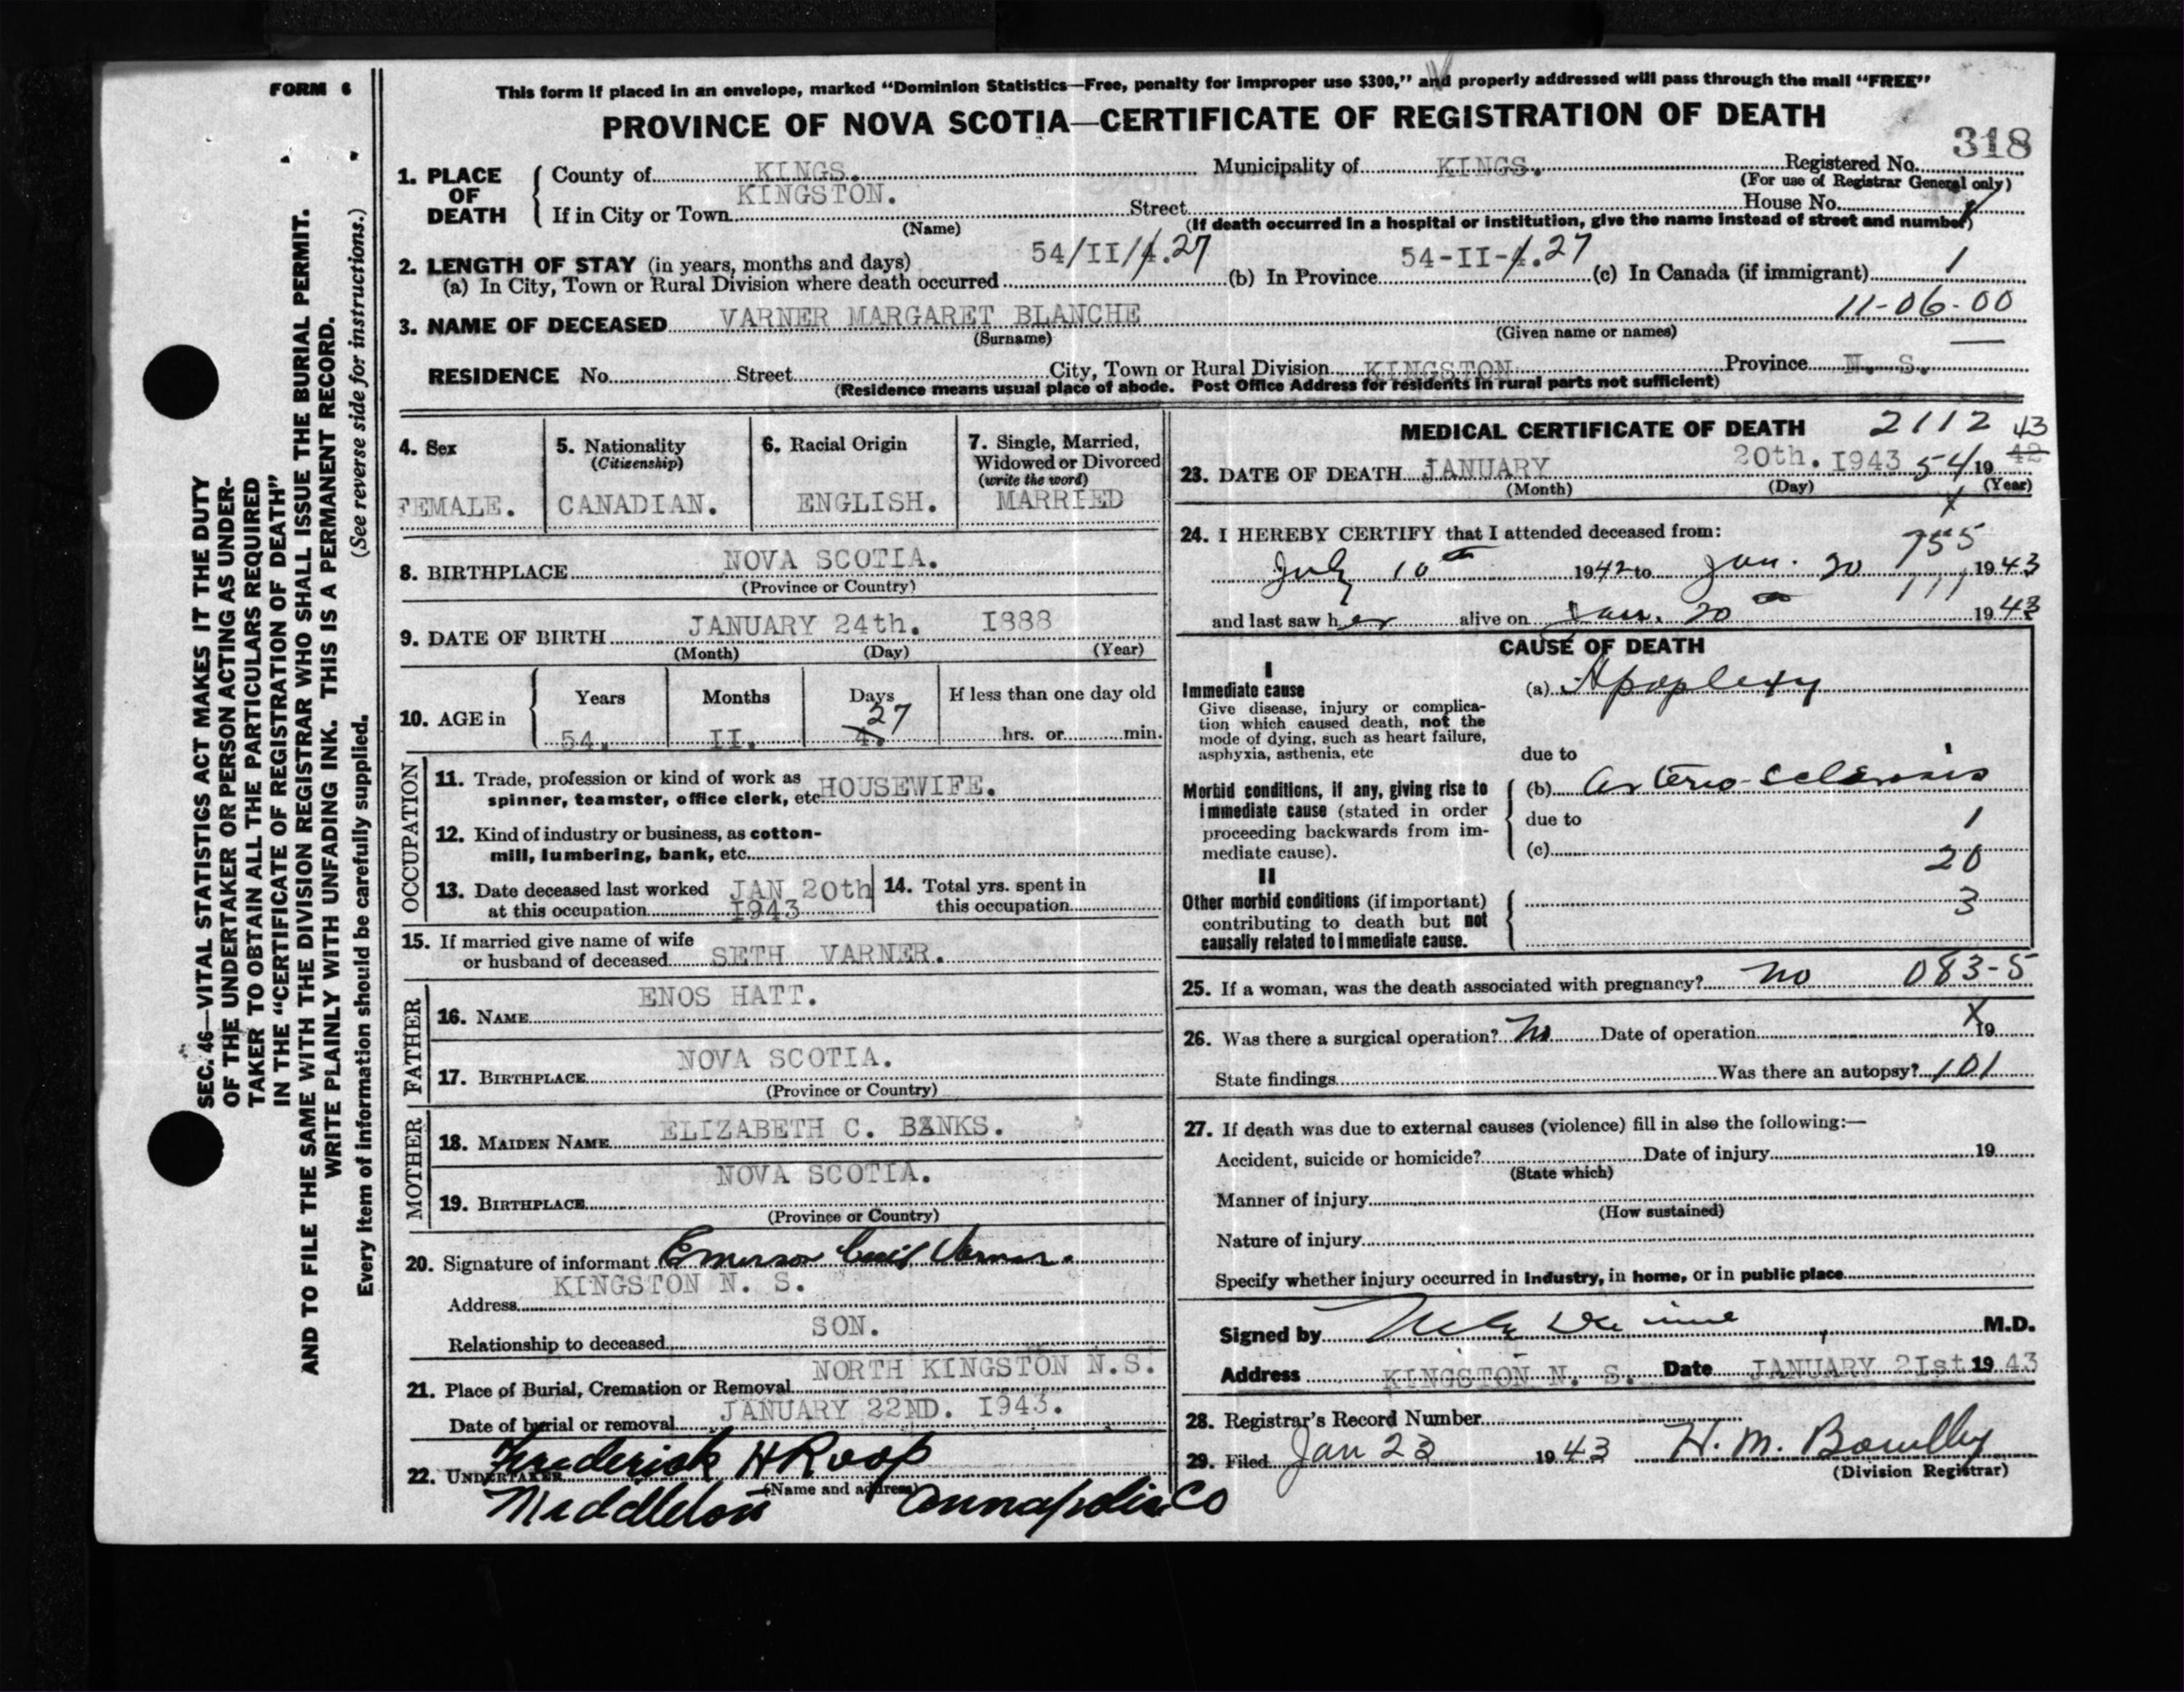 FORM 6
This form if placed in an envelope, marked "Dominion Statistics—Free, penalty for improper use $300," and properly addressed will pass through the mail "FREE"
PROVINCE OF NOVA SCOTIA—CERTIFICATE OF REGISTRATION OF DEATH
318
1. PLACE OF DEATH
County of KINGS. Municipality of KINGS. Registered No.
(For use of Registrar General only)
If in City or Town KINGSTON. Street House No.
(Name) (If death occurred in a hospital or institution, give the name instead of street and number)
2. LENGTH OF STAY (in years, months and days)
(a) In City, Town or Rural Division where death occurred 54/II/4.27 (b) In Province 54-II-4.27 (c) In Canada (if immigrant) 1
11-06-00
3. NAME OF DECEASED VARNER MARGARET BLANCHE
(Surname) (Given name or names)
RESIDENCE No. Street City, Town or Rural Division KINGSTON Province N. S.
(Residence means usual place of abode. Post Office Address for residents in rural parts not sufficient)
4. Sex
FEMALE.
5. Nationality
(Citizenship)
CANADIAN.
6. Racial Origin
ENGLISH.
7. Single, Married,
Widowed or Divorced
(write the word)
MARRIED
8. BIRTHPLACE NOVA SCOTIA.
(Province or Country)
9. DATE OF BIRTH JANUARY 24th. I888
(Month) (Day) (Year)
10. AGE in
Years Months Days If less than one day old
54. II. 4. 27 hrs. or min.
OCCUPATION
11. Trade, profession or kind of work as
spinner, teamster, office clerk, etc. HOUSEWIFE.
12. Kind of industry or business, as cotton-
mill, lumbering, bank, etc.
13. Date deceased last worked JAN 20th
at this occupation I943
14. Total yrs. spent in
this occupation
15. If married give name of wife
or husband of deceased SETH VARNER.
FATHER
16. NAME ENOS HATT.
17. BIRTHPLACE NOVA SCOTIA.
(Province or Country)
MOTHER
18. MAIDEN NAME ELIZABETH C. BANKS.
19. BIRTHPLACE NOVA SCOTIA.
(Province or Country)
20. Signature of informant Emerson Cecil Varner.
Address KINGSTON N. S.
Relationship to deceased SON.
21. Place of Burial, Cremation or Removal NORTH KINGSTON N.S.
Date of burial or removal JANUARY 22ND. I943.
22. UNDERTAKER Frederick H Roop
(Name and address)
Middleton Annapolis Co
MEDICAL CERTIFICATE OF DEATH 2112
23. DATE OF DEATH JANUARY 20th. I943 54 19 42 43
(Month) (Day) (Year)
X
24. I HEREBY CERTIFY that I attended deceased from:
755
July 10th 1942 to Jan. 20 1943
111
and last saw her alive on Jan. 20th 1943
CAUSE OF DEATH
I
Immediate cause
Give disease, injury or complica-
tion which caused death, not the
mode of dying, such as heart failure,
asphyxia, asthenia, etc
(a) Apoplexy
due to
Morbid conditions, if any, giving rise to
immediate cause (stated in order
proceeding backwards from im-
mediate cause).
(b) Arterio-sclerosis
due to
1
(c)
20
II
Other morbid conditions (if important)
contributing to death but not
causally related to immediate cause.
3
25. If a woman, was the death associated with pregnancy? no 083-5
26. Was there a surgical operation? No Date of operation X 19
State findings Was there an autopsy? 101
27. If death was due to external causes (violence) fill in also the following:—
Accident, suicide or homicide? Date of injury 19
(State which)
Manner of injury
(How sustained)
Nature of injury
Specify whether injury occurred in industry, in home, or in public place
Signed by M.D.
Address KINGSTON N. S. Date JANUARY 2Ist 1943
28. Registrar's Record Number
29. Filed Jan 23 1943 H. M.
(Division Registrar)
SEC. 46—VITAL STATISTICS ACT MAKES IT THE DUTY
OF THE UNDERTAKER OR PERSON ACTING AS UNDER-
TAKER TO OBTAIN ALL THE PARTICULARS REQUIRED
IN THE "CERTIFICATE OF REGISTRATION OF DEATH"
AND TO FILE THE SAME WITH THE DIVISION REGISTRAR WHO SHALL ISSUE THE BURIAL PERMIT.
WRITE PLAINLY WITH UNFADING INK. THIS IS A PERMANENT RECORD.
Every item of information should be carefully supplied. (See reverse side for instructions.)